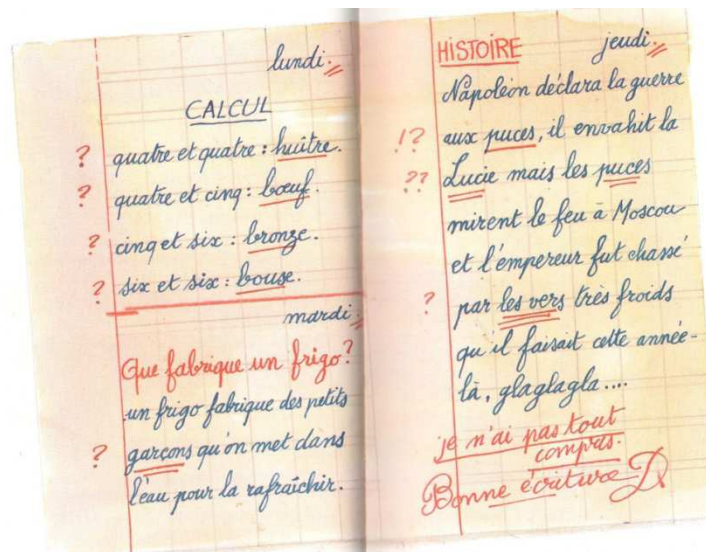 lundi.
CALCUL
? quatre et quatre : huître.
? quatre et cinq : bœuf.
? cinq et six : bronze.
? six et six : bouse.
mardi.
Que fabrique un frigo?
un frigo fabrique des petits
? garçons qu'on met dans
l'eau pour la rafraîchir.
HISTOIRE jeudi.
Napoléon déclara la guerre
!? aux puces, il envahit la
?? Lucie mais les puces
mirent le feu à Moscou
et l'empereur fut chassé
? par les vers très froids
qu'il faisait cette année-
là, glaglagla....
je n'ai pas tout
compris.
Bonne écriture D